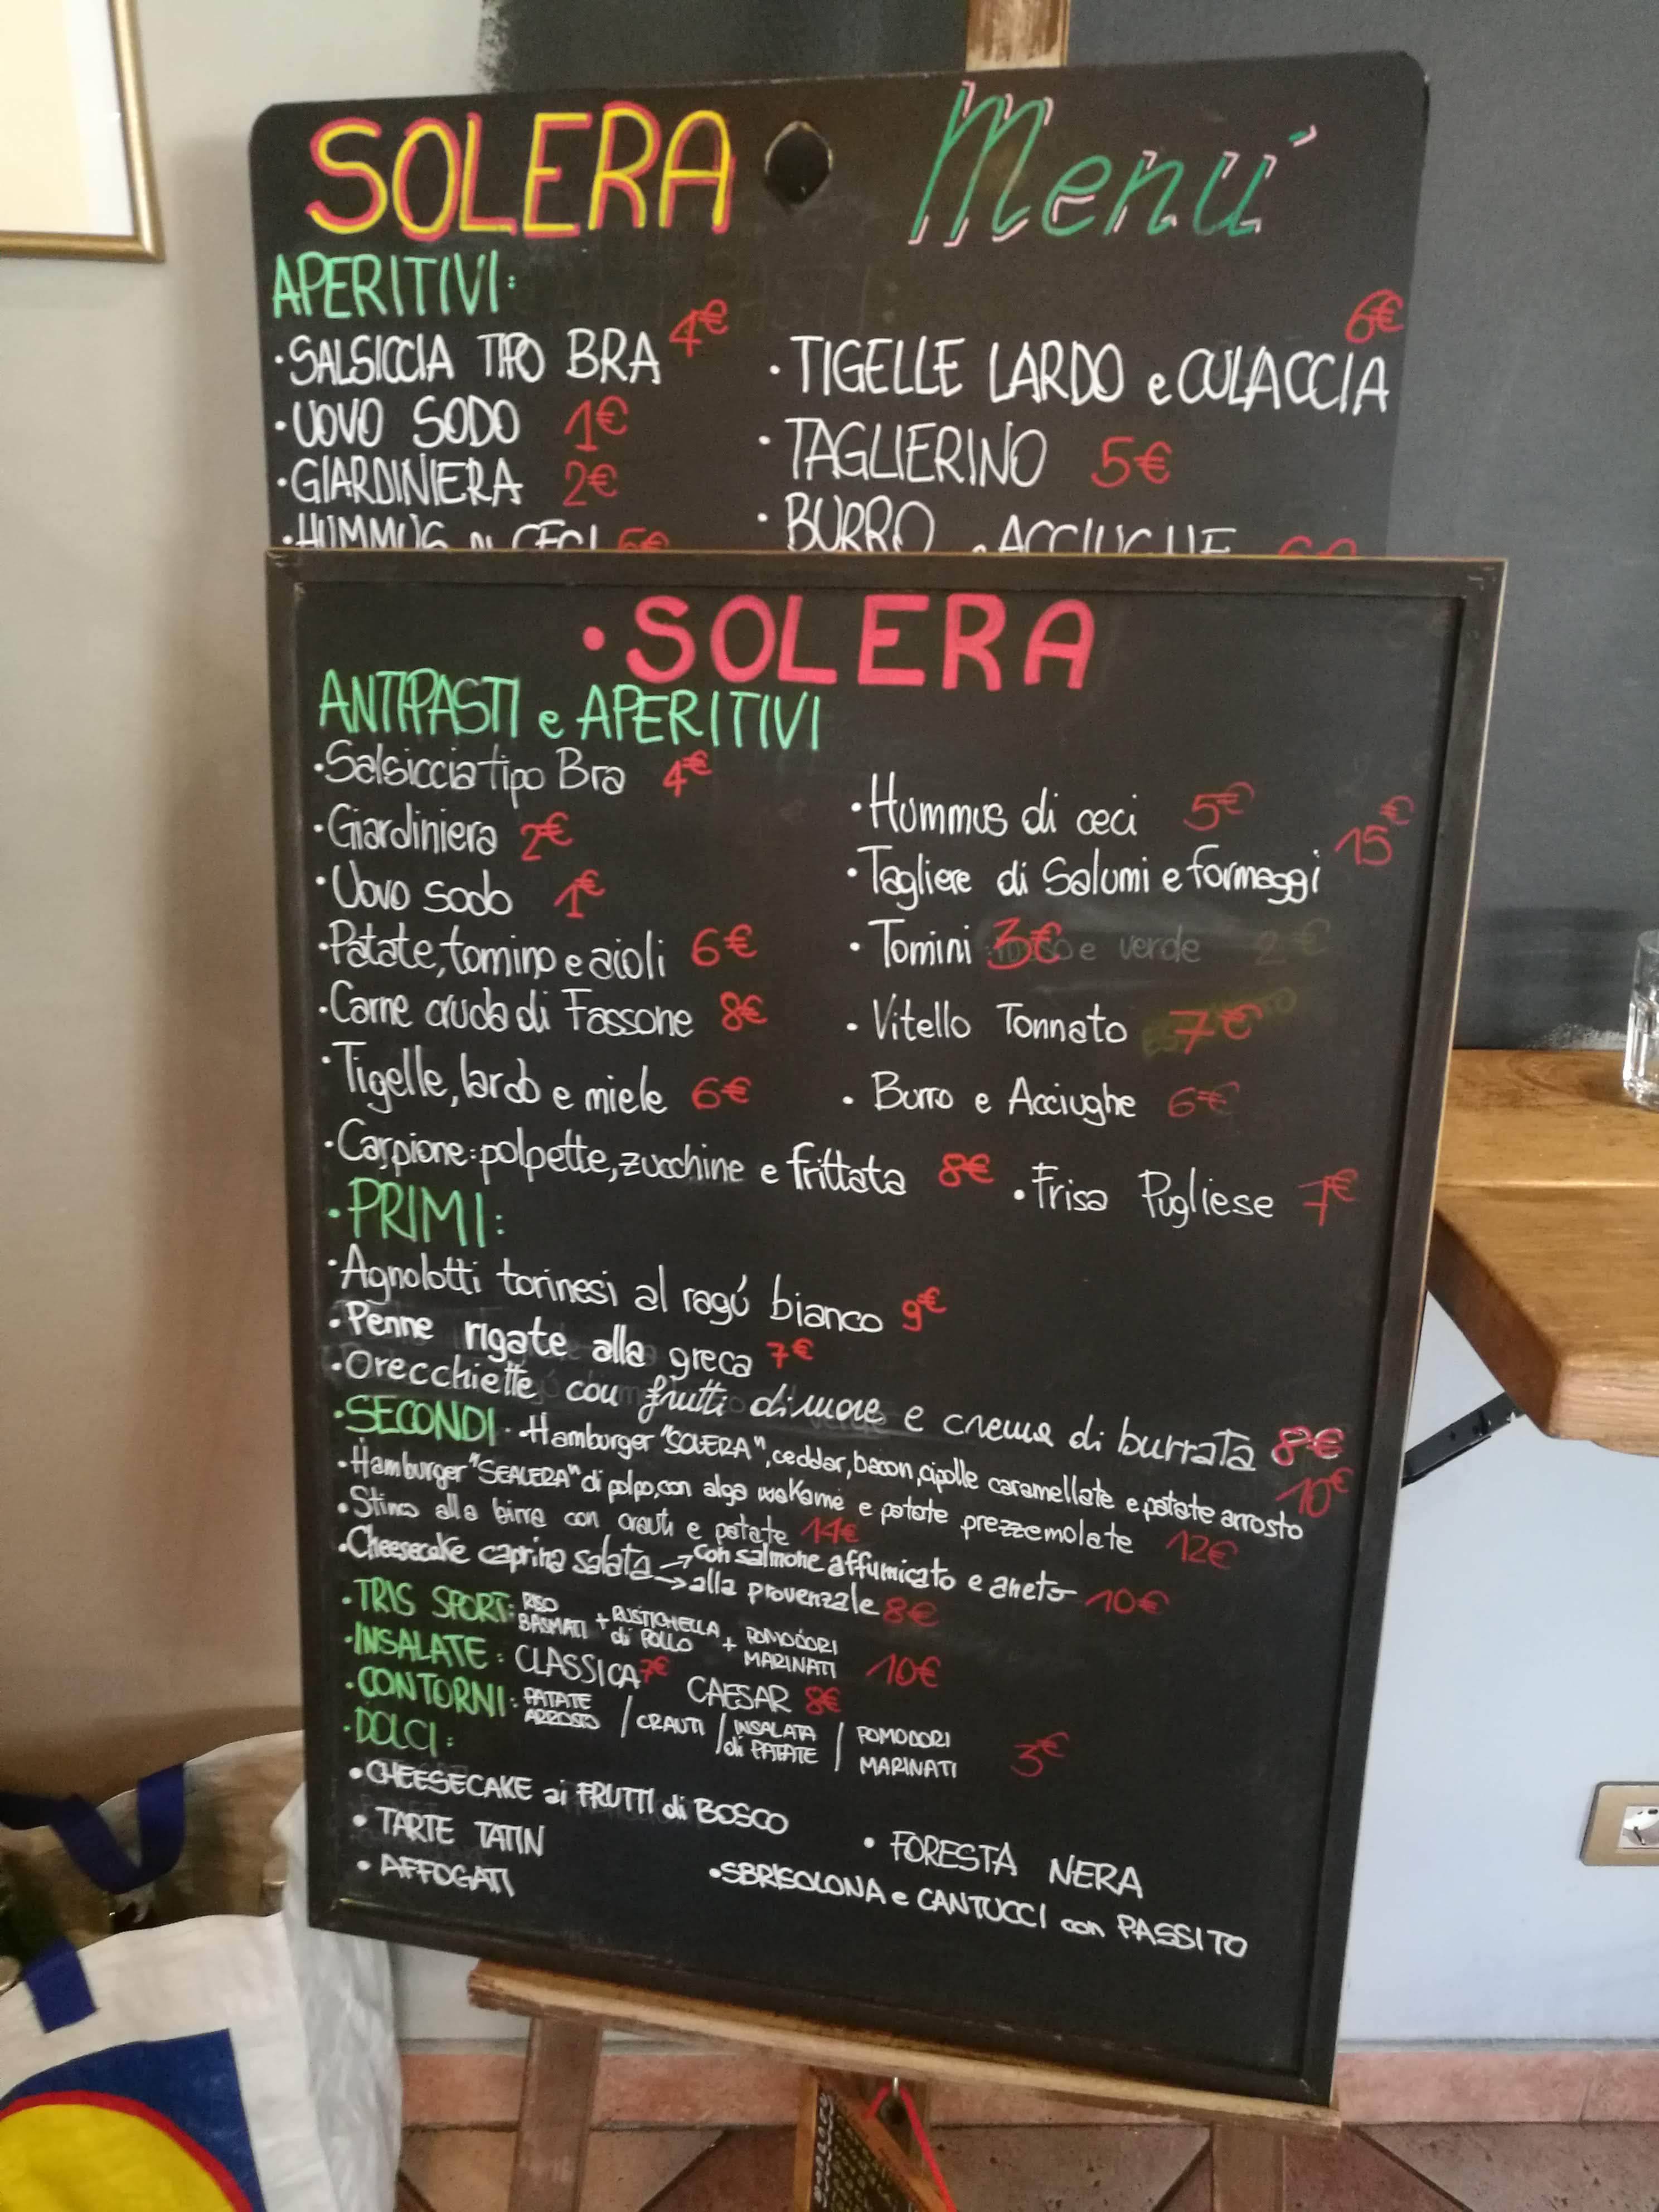 SOLERA Menú
APERITIVI:
·SALSICCIA TIPO BRA 4€
·UOVO SODO 1€
·GIARDINIERA 2€
·HUMMUS DI CECI 5€
·TIGELLE LARDO e CULACCIA 6€
·TAGLIERINO 5€
·BURRO e ACCIUGHE 6€
·SOLERA
ANTIPASTI e APERITIVI
·Salsiccia tipo Bra 4€
·Giardiniera 2€
·Uovo sodo 1€
·Patate, tomino e aioli 6€
·Carne cruda di Fassone 8€
·Tigelle, lardo e miele 6€
·Hummus di ceci 5€
·Tagliere di Salumi e formaggi 15€
·Tomini 3€ e verde 2€
·Vitello Tonnato 7€
·Burro e Acciughe 6€
·Carpione: polpette, zucchine e frittata 8€ ·Frisa Pugliese 7€
·PRIMI:
·Agnolotti torinesi al ragú bianco 9€
·Penne rigate alla greca 7€
·Orecchiette con frutti di mare e crema di burrata 8€
·SECONDI·
·Hamburger "SOLERA", ceddar, bacon, cipolle caramellate e patate arrosto 10€
·Hamburger "SEALERA" di polpo, con alga wakame e patate prezzemolate 12€
·Stinco alla birra con crauti e patate 14€
·Cheesecake caprina salata → con salmone affumicato e aneto 10€
→ alla provenzale 8€
·TRIS SPORT: RISO BASMATI + RUSTICHELLA di POLLO + POMODORI MARINATI 10€
·INSALATE: CLASSICA 7€ CAESAR 8€
·CONTORNI: PATATE ARROSTO / CRAUTI / INSALATA di PATATE / POMODORI MARINATI 3€
·DOLCI:
·CHEESECAKE ai FRUTTI di BOSCO
·TARTE TATIN
·AFFOGATI
·FORESTA NERA
·SBRISOLONA e CANTUCCI con PASSITO